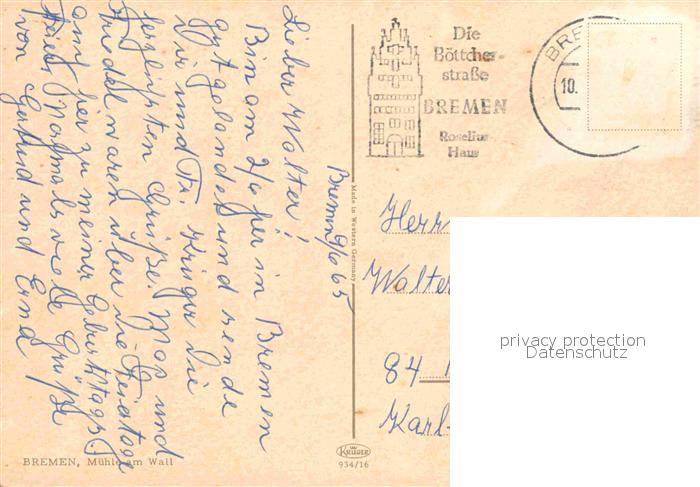 Bremen 9/6 65
Lieber Walter!
Bin am 2/6 hier in Bremen
gut gelandet und sende
Dir und Fr. Krüger die
herzlichsten Grüße. Max und
Friedel waren über die Feiertage
auch hier zu meiner Geburtstagsf.
Nochmals viele Grüße
von Gertrud und Ernst
BREMEN, Mühle am Wall
Made in Western Germany
KRÜGER
934/16
Die
Böttcher-
straße
BREMEN
Roselius-
Haus
BRE
10.
Herrn
Walter
84
Karl-
privacy protection
Datenschutz